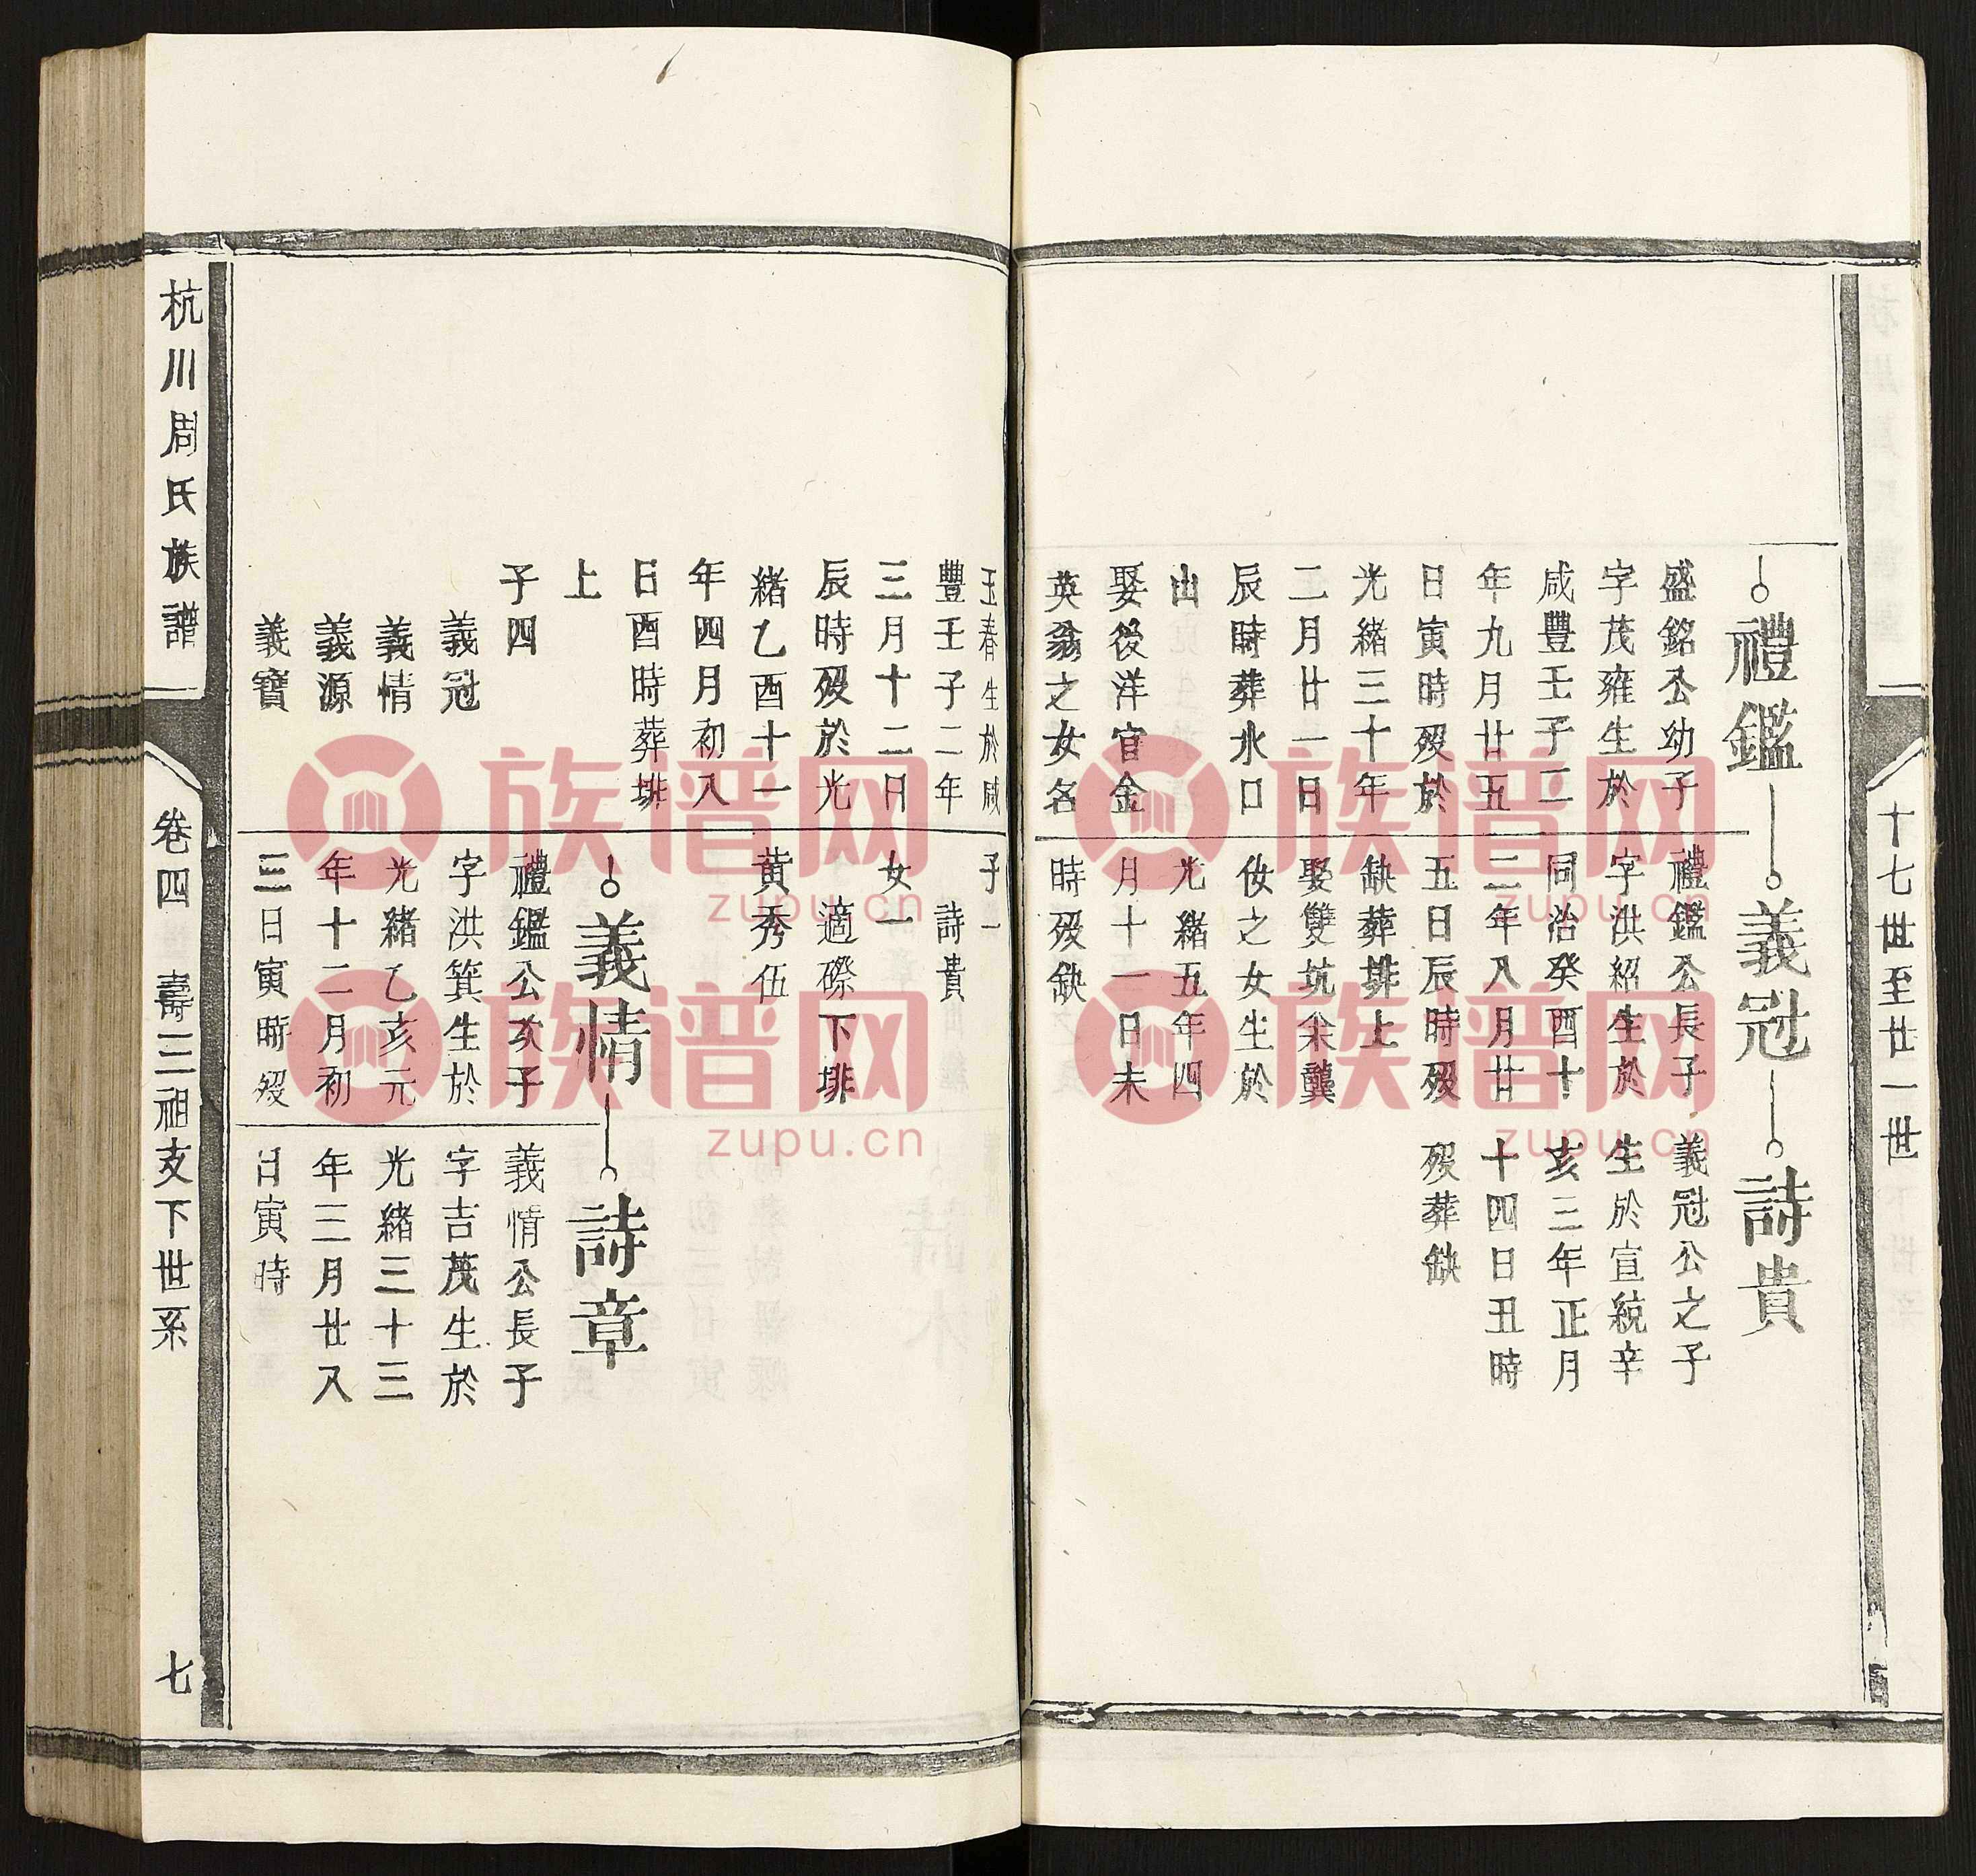 十七世至廿一世
禮鑑
義冠
詩貴
盛銘公幼子
字茂雍生於
咸豐壬子二
年九月廿五
日寅時歿於
光緒三十年
二月廿一日
辰時葬水口
山
娶後洋官金
英翁之女名
禮鑑公長子
字洪紹生於
同治癸酉十
二年八月廿
五日辰時歿
缺葬排上
娶雙坑余龔
伩之女生於
光緒五年四
月十一日未
時歿缺
義冠公之子
生於宣統辛
亥三年正月
十四日丑時
歿葬缺
玉春生於咸
豐壬子二年
三月十二日
辰時歿於光
緒乙酉十一
年四月初八
日酉時葬排
上
子四
義冠
義情
義源
義寶
子一
詩貴
女一
適磜下排
黄秀伍
義情
詩章
禮鑑公次子
字洪箕生於
光緒乙亥元
年十二月初
三日寅時歿
義情公長子
字吉茂生於
光緒三十三
年三月廿八
日寅時
杭川周氏族譜
卷四 壽三祖支下世系
七
族谱网
zupu.cn
族谱网
zupu.cn
族谱网
zupu.cn
族谱网
zupu.cn